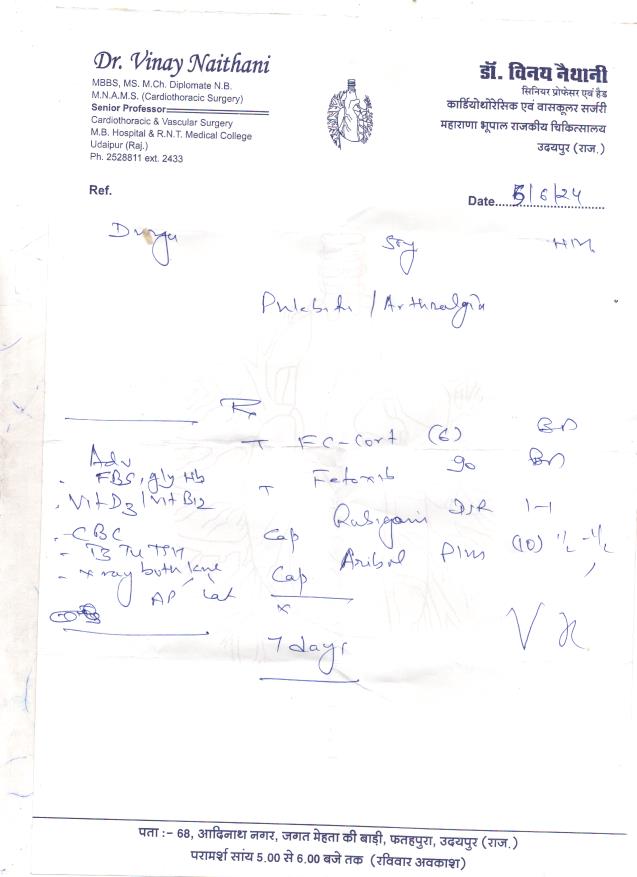 Dr. Vinay Naithani
MBBS, MS. M.Ch. Diplomate N.B.
M.N.A.M.S. (Cardiothoracic Surgery)
Senior Professor
Cardiothoracic & Vascular Surgery
M.B. Hospital & R.N.T. Medical College
Udaipur (Raj.)
Ph. 2528811 ext. 2433
डॉ. विनय नैथानी
सिनियर प्रोफेसर एवं हैड
कार्डियोथोरेसिक एवं वासकूलर सर्जरी
महाराणा भूपाल राजकीय चिकित्सालय
उदयपुर (राज.)
Ref.
Date 5/6/24
Durga
/ Arthralgia
Rx
T (6) BD
T 90 BD
Cap DSR 1-1
Cap Plus (10) ½ - ½
x
7 days
Adv
- FBS, gly Hb
- Vit D3 / Vit B12
- CBC
- T3 T4 TSH
- x ray both knee
AP, Lat
पता :- 68, आदिनाथ नगर, जगत मेहता की बाड़ी, फतहपुरा, उदयपुर (राज.)
परामर्श सांय 5.00 से 6.00 बजे तक (रविवार अवकाश)